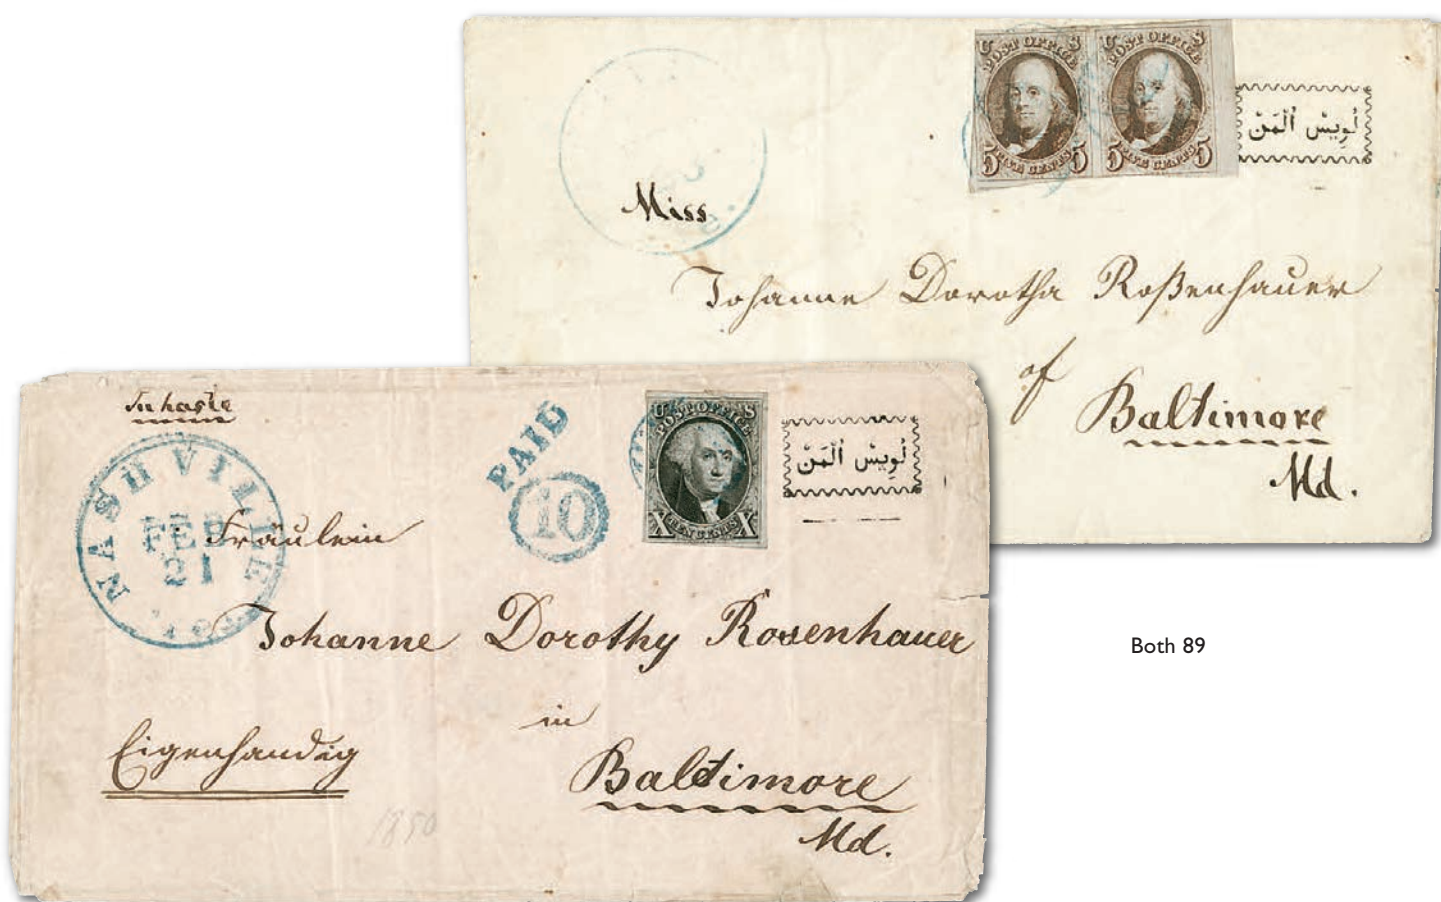 U S
POST OFFICE
5 FIVE CENTS 5
U S
POST OFFICE
5 FIVE CENTS 5
لُوِيسْ أَلْمَنْ
Miss
Johanne Dorotha Roßenhauer
of
Baltimore
Md.
In haste
NASHVILLE
FEB
21
PAID
10
U S
POST OFFICE
X TEN CENTS X
لُوِيسْ أَلْمَنْ
Fräulein
Johanne Dorothy Rosenhauer
in
Eigenhändig
Baltimore
Md.
1850
Both 89